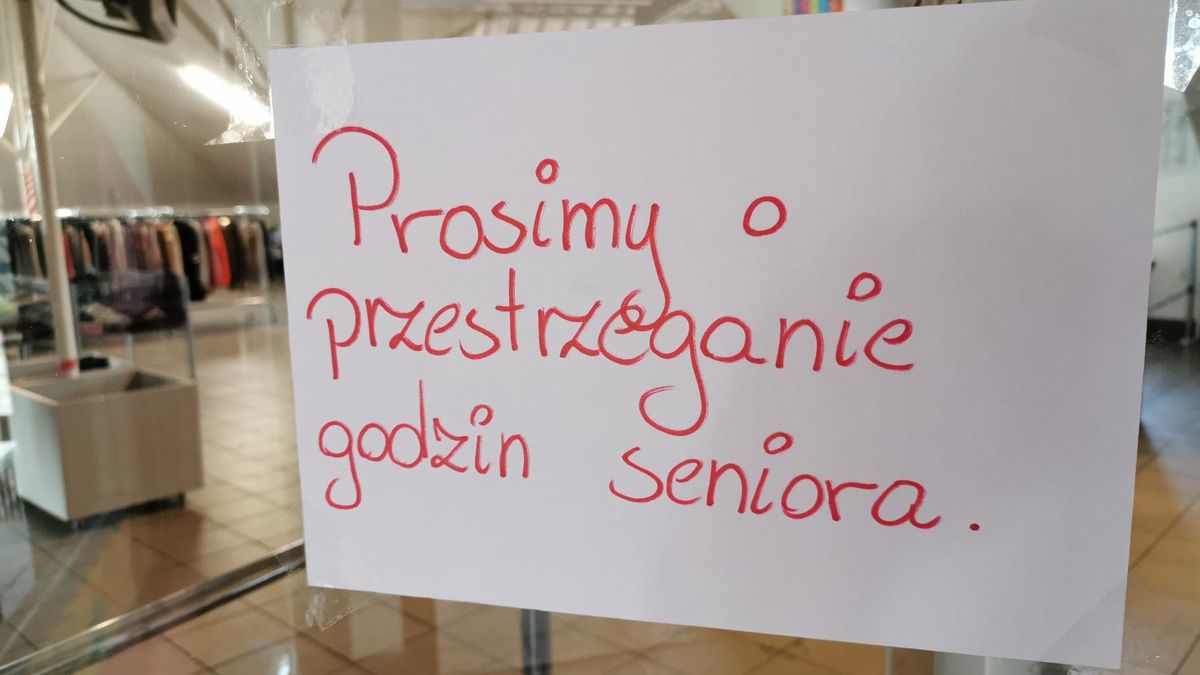 Prosimy o
przestrzeganie
godzin seniora.